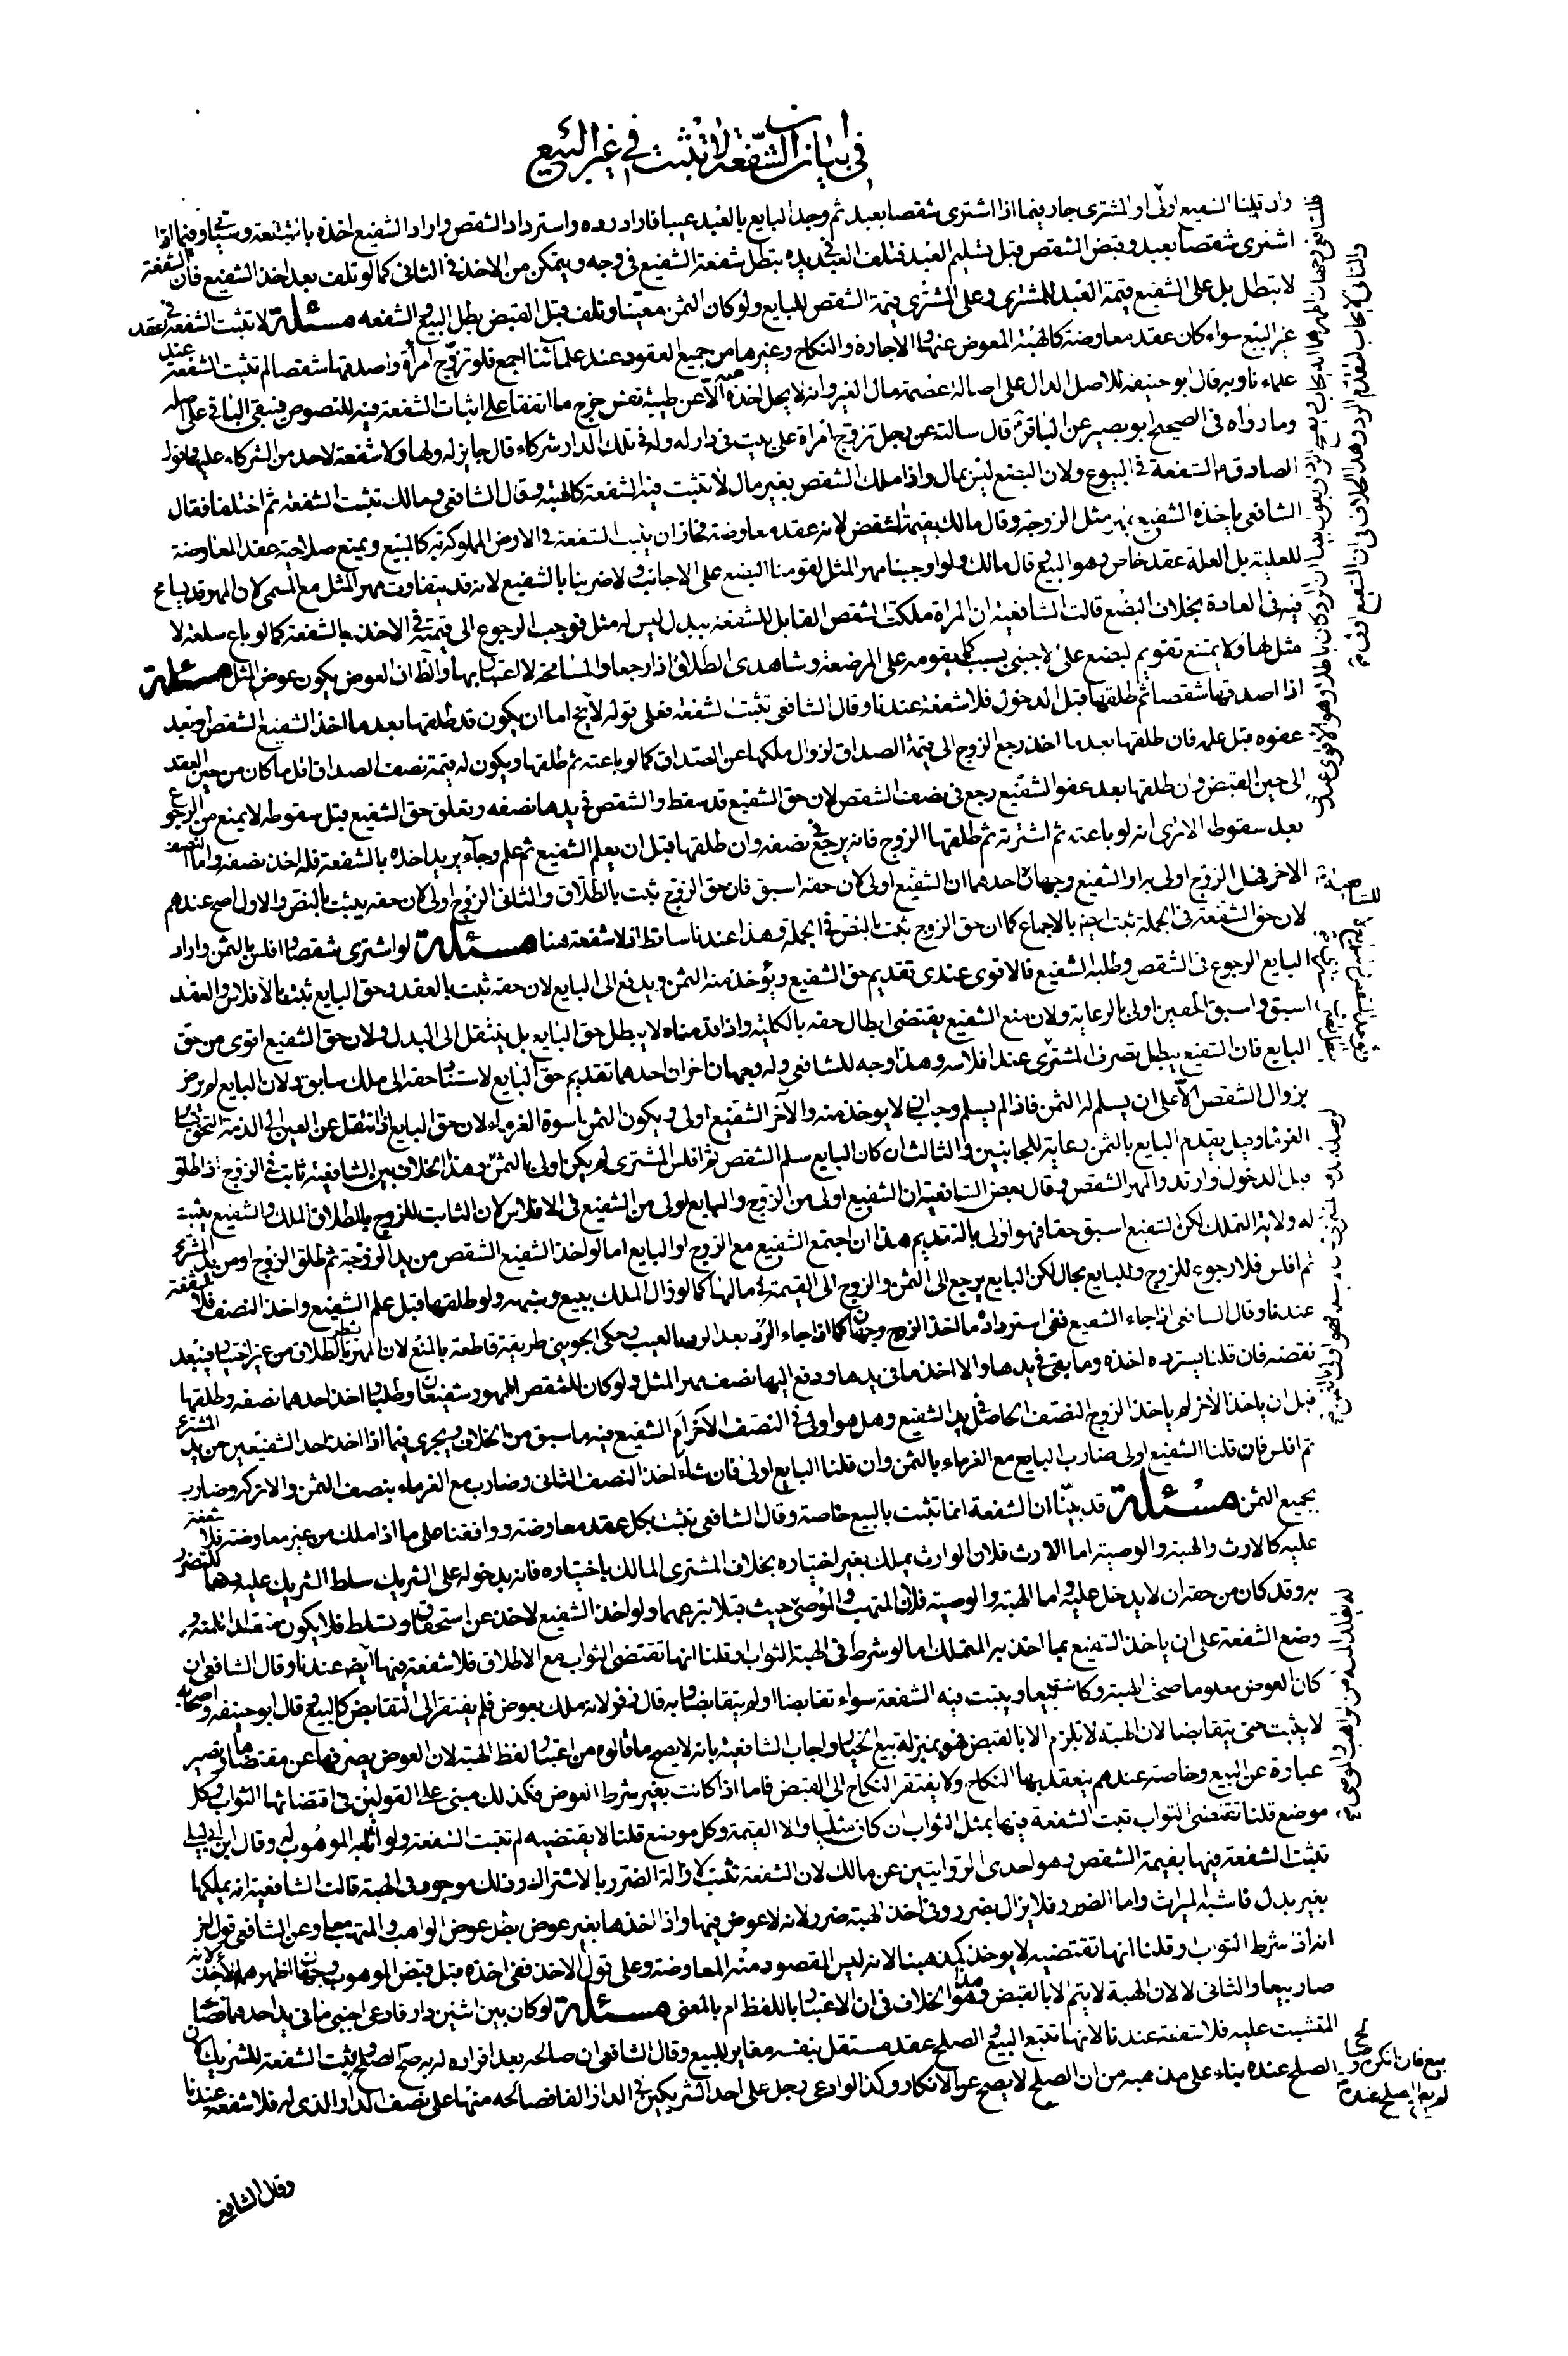 في بيان ان الشفعة لا تثبت في غير البيع
وان قلنا الشفيع اولى او المشتري جار فيما اذا اشترى شقصا بعبد ثم وجد البايع بالعبد عيبا فاراد رده واسترداد الشقص واراد الشفيع اخذه بالشفعة
اشترى شقصا بعبد وقبض الشقص قبل تسليم العبد فتلف العبد في يده بتطل شفعة الشفيع في وجه ويتمكن من الاخذ في الثاني كما لو تلف بعد اخذ الشفيع فان الشفعة
لا تبطل بل على الشفيع قيمة العبد للمشتري وعلى المشتري قيمة الشقص للبايع ولو كان الثمن معينا وتلف قبل القبض بطل البيع والشفعه مسئلة لا تثبت الشفعة في عقد
غير البيع سواء كان عقد معاوضة كالهبة المعوض عنها والاجارة والنكاح وغيرها من جميع العقود عند علمآئنا اجمع فلو تزوج امرأة واصدقها شقصا لم تثبت الشفعة عند
علماءنا وبه قال ابو حنيفه للاصل الدال على اصالة عصمة مال الغير وانه لا يحل اخذه منه الا عن طيبة نفس خرج ما اتفقنا على اثبات الشفعة فيه للنصوص فيبقى الباقي على اصله
وما رواه في الصحيح ابو بصير عن الباقر قال سالته عن رجل تزوج امراة على بيت في دار له وله في تلك الدار شركاء قال جايز له ولها ولا شفعة لاحد من الشركاء عليها وقول
الصادق الشفعة في البيوع ولان البضع ليس بمال واذا ملك الشقص بغير مال لا تثبت فيه الشفعة كالهبة وقال الشافعي ومالك تثبت الشفعة ثم اختلفا فقال
الشافعي ياخذه الشفيع بمهر مثل الزوجة وقال مالك بقيمة الشقص لانه عقد معاوضة فجاز ان يثبت الشفعة في الارض المملوكة به كالبيع ويمنع صلاحية عقد المعاوضة
للعلية بل العلة عقد خاص وهو البيع قال مالك ولو اوجبنا مهر المثل لقومنا البضع على الاجانب ولاضررنا بالشفيع لانه قد يتفاوت مهر المثل مع المسمى لان المهر قد يسامح
فيه في العادة بخلاف البضع قالت الشافعية ان المراة ملكت الشقص القابل للشفعة ببدل ليس له مثل فوجب الرجوع الى قيمته في الاخذ بالشفعة كما لو باع سلعة لا
مثل لها ولا يمتنع تقويم البضع على الاجنبي بسبب كما يقومه على المرضعة وشاهدي الطلاق اذا رجعا والمسامحة لا اعتبار بها والظ ان العوض يكون عوض المثل مسئلة
اذا اصدقها شقصا ثم طلقها قبل الدخول فلا شفعة عندنا وقال الشافعي تثبت الشفعة فعلى قوله لا يخ اما ان يكون قد طلقها بعد ما اخذ الشفيع الشقص او بعد
عفوه قبل علمه فان طلقها بعد ما اخذ رجع الزوج الى قيمة الصداق لزوال ملكها عن الصداق كما لو باعته ثم طلقها ويكون له قيمة نصف الصداق اقل ما كان من حين العقد
الى حين القبض وان طلقها بعد عفو الشفيع رجع في نصف الشقص لان حق الشفيع قد سقط والشقص في يدها نصفه وتعلق حق الشفيع قبل سقوطه لا يمنع من الرجوع
بعد سقوطه الا ترى انه لو باعته ثم اشترته ثم طلقها الزوج فانه يرجع في نصفه وان طلقها قبل ان يعلم الشفيع ثم علم وجآء يريد اخذه بالشفعة فله اخذ نصفه واما النصف
الاخر فهل الزوج اولى به او الشفيع وجهان احدهما ان الشفيع اولى لان حقه اسبق فان حق الزوج ثبت بالطلاق والثاني الزوج اولى لان حقه يثبت بالنص والاول اصح عندهم
لان حق الشفعة في الجملة ثبت ايضا بالاجماع كما ان حق الزوج يثبت بالنص في الجملة وهذا عندنا ساقط اذ لا شفعة هنا مسئلة لو اشترى شقصا وافلس بالثمن واراد
البايع الرجوع في الشقص وطلبه الشفيع فالاقوى عندي تقديم حق الشفيع ويؤخذ منه الثمن ويدفع الى البايع لان حقه ثبت بالعقد وحق البايع ثبت بالافلاس والعقد
اسبق واسبق الحقين اولى بالرعاية ولان منع الشفيع يقتضي ابطال حقه بالكلية واذا قدمناه لا يبطل حق البايع بل ينتقل الى البدل ولان حق الشفيع اقوى من حق
البايع فان الشفيع يبطل تصرف المشتري عند افلاسه وهذا وجه للشافعي وله وجهان اخران احدهما تقديم حق البايع لاستناد حقه الى ملك سابق ولان البايع لم يرض
بزوال الشقص الا على ان يسلم له الثمن فاذا لم يسلم وجب ان لا يوخذ منه والآخر الشفيع اولى ويكون الثمن اسوة الغرماء لان حق البايع اذا انتقل عن العين الى الذمة التحق بساير
الغرماء وقيل يقدم البايع بالثمن رعاية للجانبين والثالث ان كان البايع سلم الشقص ثم افلس المشتري لم يكن اولى بالثمن وهذا الخلاف بين الشافعية ثابت في الزوج اذا طلق
قبل الدخول او ارتد والمهر الشقص وقال بعض الشافعية ان الشفيع اولى من الزوج والبايع اولى من الشفيع في الافلاس لان الثابت للزوج بالطلاق الملك والشفيع يثبت
له ولاية التملك لكن الشفيع اسبق حقا فهو اولى بالتقديم هذا ان اجتمع الشفيع مع الزوج او البايع اما لو اخذ الشفيع الشقص من يد الزوجة ثم طلق الزوج او من يد المشتري
ثم افلس فلا رجوع للزوج والبايع بحال لكن البايع يرجع الى الثمن والزوج الى القيمة في مالها كما لو زال الملك ببيع وشبهه ولو طلقها قبل علم الشفيع واخذ النصف فلا شفعة
عندنا وقال الشافعي اذا جاء الشفيع ففي استرداده ما اخذ الزوج وجهان كما اذا جاء بعد الرد بالعيب وحكى الجويني طريقة قاطعة بالمنع لان المهر يتشطر بالطلاق من غير اختيار فيبعد
نقضه فان قلنا يسترده اخذه وما بقي في يدها والا اخذ ما في يدها ودفع اليها نصف مهر المثل ولو كان للشقص الممهور شفيعان وطلبا واخذ احدهما نصفه وطلقها
قبل ان ياخذ الآخر لم ياخذ الزوج النصف الحاصل في يد الشفيع وهل هو اولى في النصف الآخر ام الشفيع فيه ما سبق من الخلاف ويجري فيما اذا اخذ احد الشفيعين من يد المشتري
ثم افلس فان قلنا الشفيع اولى ضارب البايع مع الغرماء بالثمن وان قلنا البايع اولى فان شاء اخذ النصف الثاني وضارب مع الغرماء بنصف الثمن والا تركه وضارب
بجميع الثمن مسئلة قد بينا ان الشفعة انما تثبت بالبيع خاصة وقال الشافعي تثبت بكل عقد معاوضة ووافقنا على ما اذا ملك من غير معاوضة فلا شفعة
عليه كالارث والهبة والوصية اما الارث فلان الوارث يملك بغير اختياره بخلاف المشتري المالك باختياره فانه بدخوله على الشريك سلط الشريك عليه دفعا للتضرر
به وقد كان من حقه ان لا يدخل عليه واما الهبة والوصية فلان المتهب والموصى حيث قبلا تبرعهما ولو اخذ الشفيع لاخذ عن استحقاق وتسلط فلا يكون متقلدا للمنة و
وضع الشفعة على ان ياخذ الشفيع بما اخذ به المتملك اما لو شرط في الهبة الثواب او قلنا انها تقتضي الثواب مع الاطلاق فلا شفعة فيها ايض عندنا وقال الشافعي ان
كان العوض معلوما صحت الهبة وكانت بيعا ويثبت فيه الشفعة سواء تقابضا او لم يتقابضا وبه قال زفر لانه ملك بعوض فلم يفتقر الى التقابض كالبيع وقال ابو حنيفه واصحابه
لا يثبت حتى يتقابضا لان الهبة لا تلزم الا بالقبض فهو بمنزلة بيع الخيار واجاب الشافعية بانه لا يصح ما قالوه من اعتبار لفظ الهبة لان العوض يصرفها عن مقتضاها ويصير
عبارة عن البيع وخاصة عندهم ينعقد بها النكاح ولا يفتقر النكاح الى القبض فاما اذا كانت بغير شرط العوض فكذلك مبني على القولين في اقتضائها الثواب وكل
موضع قلنا تقتضي الثواب تبت الشفعة فيها بمثل الثواب ان كان مثليا والا القيمة وكل موضع قلنا لا يقتضيه لم تثبت الشفعة ولو اثابه الموهوب له وقال ابن ابي ليلى
تثبت الشفعة فيها بقيمة الشقص وهو احدى الروايتين عن مالك لان الشفعة تثبت لازالة الضرر بالاشتراك وذلك موجود في الهبة قالت الشافعية انه يملكها
بغير بدل فاشبه الميراث واما الضرر فلا يزال بضرر وفي اخذ الهبة ضرر لانه لا عوض فيها واذا اخذها بغير عوض بطل عوض الواهب والمتهب معا وعن الشافعي قول اخر
انه اذا شرط الثواب او قلنا انها تقتضيه لا يوخذ كمذهبنا لانه ليس المقصود منه المعاوضة وعلى قول الاخذ ففي اخذه قبل قبض الموهوب وجهان اظهرهما الاخذ لانه
صار بيعا والثاني لا لان الهبة لا يتم الا بالقبض وهذا هو الخلاف في ان الاعتبار باللفظ ام بالمعنى مسئلة لو كان بين اثنين دار فادعى اجنبي ما في يد احدهما فصالحه
المتشبث عليه فلا شفعة عندنا لانها تتبع البيع والصلح عقد مستقل بنفسه مغاير للبيع وقال الشافعي ان صالحه بعد اقراره له به صح الصلح وثبت الشفعة للشريك لان
الصلح عنده بيناء على مذهبه من ان الصلح لا يصح عن الانكار وكذا لو ادعى رجل على احد الشريكين في الدار الفا فصالحه منها على نصف الدار الذي له فلا شفعة عندنا
بيع فان انكره
لم يصح الصلح عنده
وقال الشافعي